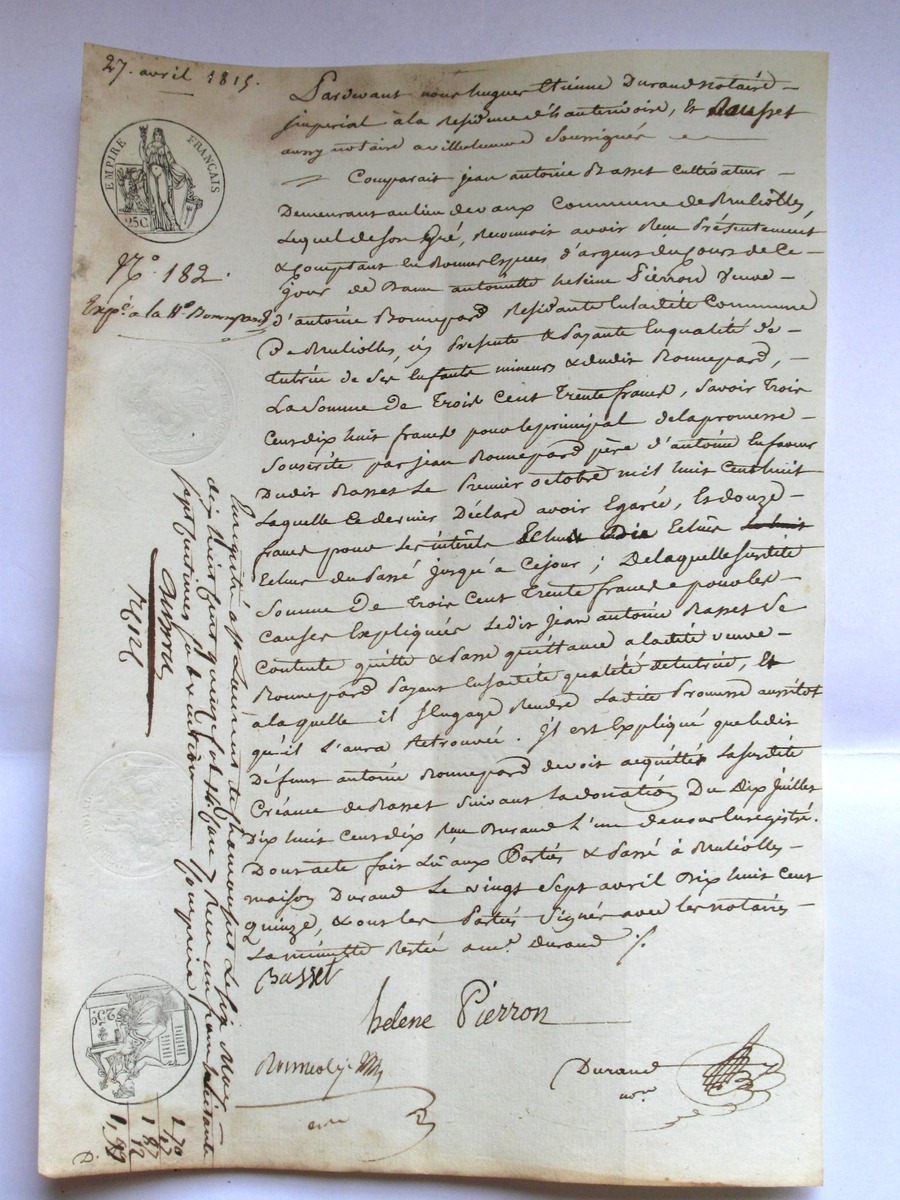 27. avril 1815.
EMPIRE FRANÇAIS
25C
N.º 182.
Exp.e a la V.e Bonnepard
Pardevant nous hugues Etienne Durand notaire
imperial à la Residence d'hauterivoire, Et
aussy notaire a villechenève Soussignés
Comparait jean antoine Basset Cultivateur
Demeurant au lieu de vaux Commune de
Lequel de son Gré, Reconnoit avoir Reçu Présentement
& Comptant En Bonnes Espèces d'argent du Cours de Ce
jour de Dame antoinette heleine Pierron Veuve
d'antoine Bonnepard Residante Enladite Commune
De, icy Presente & Payante En qualité de
tutrice de Ses Enfants mineurs & dudit Bonnepard,
La Somme De Trois Cent Trente francs, Savoir Trois
Cent dix huit francs pour le principal de la promesse
Souscrite par jean Bonnepard père d'antoine En faveur
Dudit Basset Le Premier octobre mil huit Cent huit
Laquelle Ce dernier Déclare avoir Egarée, Et douze
francs pour Les intérêts Echus
Echus du Passé jusqu'à Ce jour ; De laquelle Susdite
Somme De Trois Cent Trente francs & pour les
Causes Expliquées Ledit jean antoine Basset Se
Contente quitte & Passe quittance a ladite veuve
Bonnepard Payant En sadite qualité de tutrice, Et
a laquelle il S'engage Rendre Ladite Promesse aussitot
qu'il L'aura Retrouvée. Il est Expliqué que ledit
Défunt antoine Bonnepard devoit acquitter La susdite
Créance de Basset Suivant La donation Du Dix Juillet
Dix huit Cent dix Reçu Durand L'un de nous Enregistré.
Dont acte fait Lu aux Parties & Passé à
maison Durand Le vingt Sept avril Dix huit Cent
quinze, & ont les Parties Signés avec les notaires
La minutte Restée a m.e Durand
Basset
helene Pierron
Durand
nore
Enregistré à St Laurent de chamousset Le six May
dix huit cent quinze fol. Reçu un franc soixante
sept centimes subvention comprise
25C
1 70
17
1 87
12
1,99
D.